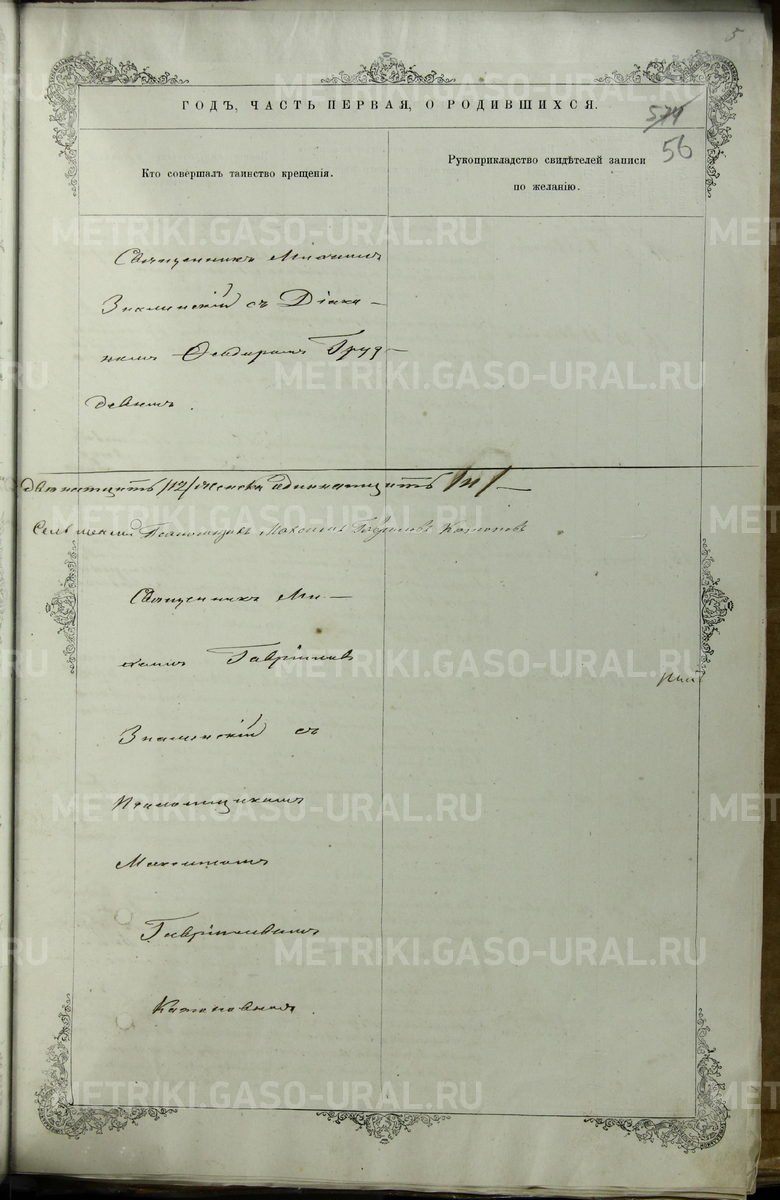 5
ГОДЪ, ЧАСТЬ ПЕРВАЯ, О РОДИВШИХСЯ.
574
56
Кто совершалъ таинство крещенія.
Рукоприкладство свидѣтелей записи
по желанію.
Священникъ Михаилъ
Знаменскій съ Діако-
номъ Ѳеодоромъ Груз-
девымъ.
двенатцать /12/ женска одиннатцать /11/
Псаломщикъ Максимъ Гавриловъ
Священникъ Ми-
хаилъ Гавріиловъ
Знаменскій съ
Псаломщикомъ
Максимомъ
Гавріиловымъ
METRIKI.GASO-URAL.RU